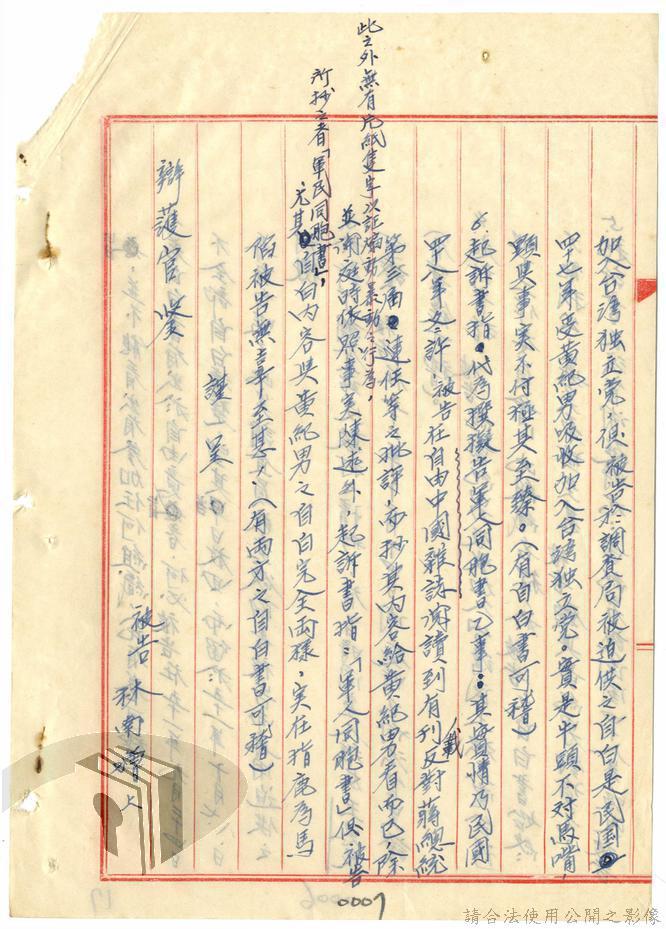 加入台灣独立党,但被告於調查局被迫供之自白是民国
四十七年受黃紀男吸收加入台灣独立党。實是牛頭不对馬嘴,
顯与事実不付極其至臻。(有自白書可稽)
6.起訴書指。代為撰擬告軍人同胞書乙事:其實情乃民國
四十八年冬許,被告在自由中國雜誌閱讀到有刊載反對蔣總統
第三屆連任等之批評,而抄其內容給黃紀男看而已,除
此之外無有片紙隻字以証煽動暴動之行為,
並開庭時依照事実陳述外,起訴書指:「軍人同胞書」但被告
所抄之者「軍民同胞書」,
尤其自白內容与黃紀男之自白完全両樣,実在指鹿為馬
陷被告無辜至甚,(有両方之自白書可稽)
謹呈
辯護官鑒
被告 林南 上
0007
請合法使用公開之影像